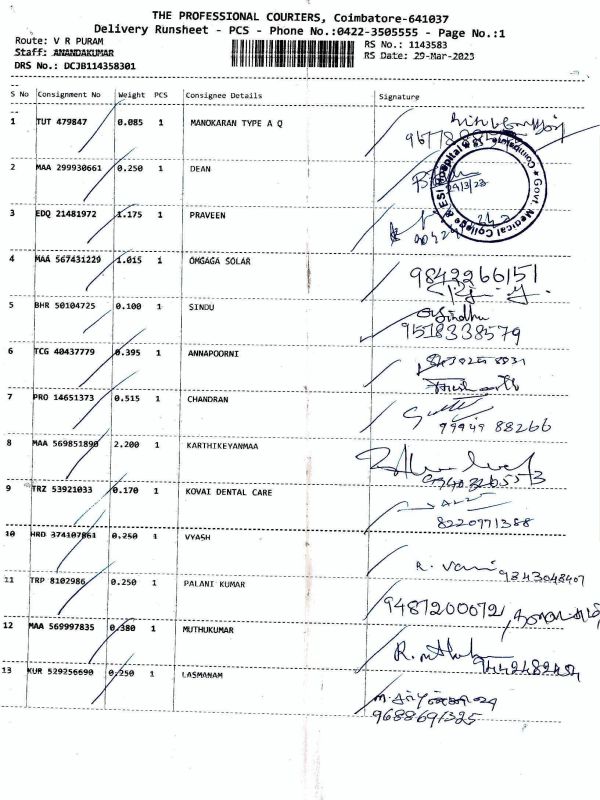 THE PROFESSIONAL COURIERS, Coimbatore-641037
Delivery Runsheet - PCS - Phone No.:0422-3505555 - Page No.:1
Route: V R PURAM
RS No.: 1143583
Staff: ANANDAKUMAR
RS Date: 29-Mar-2023
DRS No.: DCJB114358301
S No Consignment No Weight PCS Consignee Details Signature
1 TUT 479847 0.085 1 MANOKARAN TYPE A Q
2 MAA 299930661 0.250 1 DEAN
29/3/23
Govt. Medical College & ESI Hospital
3 EDQ 21481972 1.175 1 PRAVEEN
4 MAA 567431229 1.015 1 OMGAGA SOLAR
9842266151
5 BHR 50104725 0.100 1 SINDU
Sindhu
9518338579
6 TCG 40437779 0.395 1 ANNAPOORNI
7 PRO 14651373 0.515 1 CHANDRAN
99949 88266
8 MAA 569851890 2.200 1 KARTHIKEYANMAA
9 TRZ 53921033 0.170 1 KOVAI DENTAL CARE
8220971388
10 HRD 374107861 0.250 1 VYASH
R. Vani 9343048407
11 TRP 8102986 0.250 1 PALANI KUMAR
9487200072,
12 MAA 569997835 0.380 1 MUTHUKUMAR
13 KUR 529256690 0.250 1 LASMANAM
9688691325